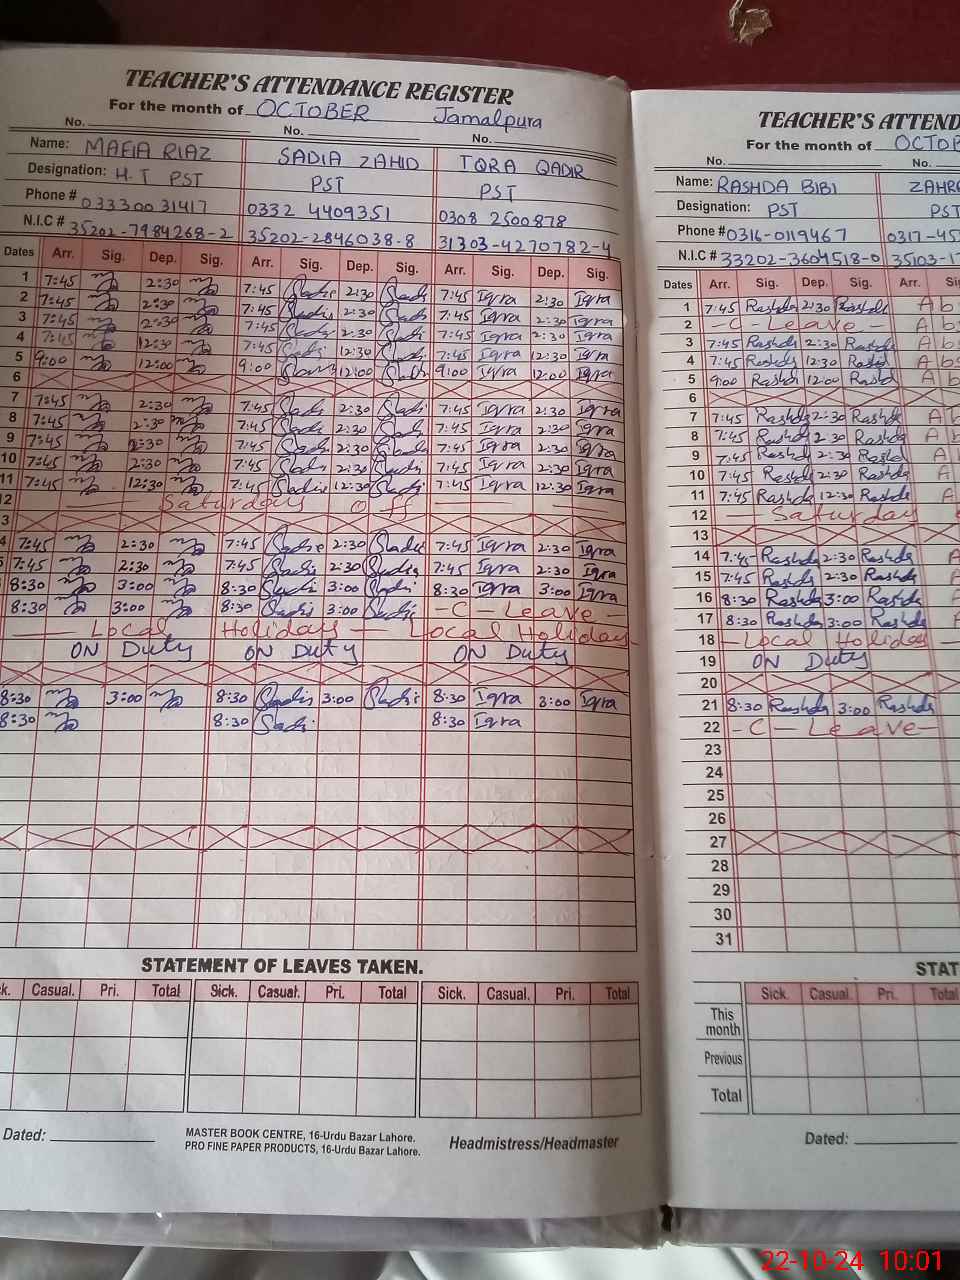 TEACHER'S ATTENDANCE REGISTER
For the month of OCTOBER Jamalpura
No. No. No.
Name: MAFIA RIAZ SADIA ZAHID IQRA QADIR
Designation: H.T PST PST PST
Phone # 033300 31417 0332 4409351 0308 2500878
N.I.C # 35202-7984268-2 35202-2846038-8 31303-4270782-4
Dates Arr. Sig. Dep. Sig. Arr. Sig. Dep. Sig. Arr. Sig. Dep. Sig.
1 7:45 2:30 7:45 Sadia 2:30 Sadi 7:45 Iqra 2:30 Iqra
2 7:45 2:30 7:45 Sadia 2:30 Sadi 7:45 Iqra 2:30 Iqra
3 7:45 2:30 7:45 Sadi 2:30 Sadi 7:45 Iqra 2:30 Iqra
4 7:45 12:30 7:45 Sadi 12:30 Sadi 7:45 Iqra 12:30 Iqra
5 9:00 12:00 9:00 12:00 Sadi 9:00 Iqra 12:00 Iqra
6
7 7:45 2:30 7:45 Sadi 2:30 Sadi 7:45 Iqra 2:30 Iqra
8 7:45 2:30 7:45 Sadi 2:30 Sadi 7:45 Iqra 2:30 Iqra
9 7:45 2:30 7:45 Sadi 2:30 Sadi 7:45 Iqra 2:30 Iqra
10 7:45 2:30 7:45 Sadi 2:30 Sadi 7:45 Iqra 2:30 Iqra
11 7:45 12:30 7:45 Sadia 12:30 Sadi 7:45 Iqra 12:30 Iqra
12 Saturdays off
3
4 7:45 2:30 7:45 Sadia 2:30 Sadia 7:45 Iqra 2:30 Iqra
5 7:45 2:30 7:45 Sadi 2:30 Sadia 7:45 Iqra 2:30 Iqra
8:30 3:00 8:30 Sadi 3:00 Sadi 8:30 Iqra 3:00 Iqra
8:30 3:00 8:30 Sadi 3:00 Sadi -C-Leave-
Local Holidays Local Holiday
ON Duty ON Duty ON Duty
8:30 3:00 8:30 Sadis 3:00 Sadi 8:30 Iqra 3:00 Iqra
8:30 8:30 Sadi 8:30 Iqra
STATEMENT OF LEAVES TAKEN.
k. Casual. Pri. Total Sick. Casual. Pri. Total Sick. Casual. Pri. Total
Dated:
MASTER BOOK CENTRE, 16-Urdu Bazar Lahore.
PRO FINE PAPER PRODUCTS, 16-Urdu Bazar Lahore.
Headmistress/Headmaster
TEACHER'S ATTEND
For the month of OCTOB
No. No.
Name: RASHDA BIBI ZAHR
Designation: PST PST
Phone # 0316-0119467 0317-45
N.I.C # 33202-3604518-0 35103-17
Dates Arr. Sig. Dep. Sig. Arr. Si
1 7:45 Rashda 2:30 Rashda Ab
2 -C-Leave- Ab
3 7:45 Rashda 2:30 Rashda Ab
4 7:45 Rashda 12:30 Rashd Ab
5 9:00 Rashd 12:00 Rashd Ab
6
7 7:45 Rashda 2:30 Rashda Ab
8 7:45 Rashda 2:30 Rashda Ab
9 7:45 Rashda 2:30 Rashda A
10 7:45 Rashda 2:30 Rashda A
11 7:45 Rashda 12:30 Rashda A
12 Saturday
13
14 7:45 Rashda 2:30 Rashda A
15 7:45 Rashda 2:30 Rashda A
16 8:30 Rashda 3:00 Rashda A
17 8:30 Rashda 3:00 Rashda A
18 Local Holiday
19 ON Duty
20
21 8:30 Rashda 3:00 Rashda
22 -C-Leave-
23
24
25
26
27
28
29
30
31
STAT
Sick. Casual. Pri. Total
This month
Previous
Total
Dated:
22-10-24 10:01